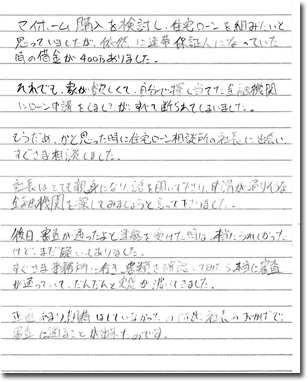 マイホーム購入を検討し、住宅ローンを組みたいと
思っていましたが、依然に連帯保証人になっていた
時の借金が400万ありました。
それでも、家が欲しくて、自分で探し当てた金融機関
にローン申請をしましたが、すべて断られてしまいました。
もうだめかと思った時に住宅ローン相談所の社長に出会い
すぐさま相談しました。
社長はとても親身になり、話を聞いて下さり、申請が通りそうな
金融機関を探してみましょうと言って下さいました。
後日、審査が通ったよと連絡を受けた時は、本当にうれしかった
けど、まだ疑いもありました。
すぐさま事務所に行き、書類を確認してみたら、本当に審査
が通っていて、だんだんと実感が湧いてきました。
正直、あまり期待はしていなかったのですが、社長のおかげで、
審査に通ることが出来たのです。